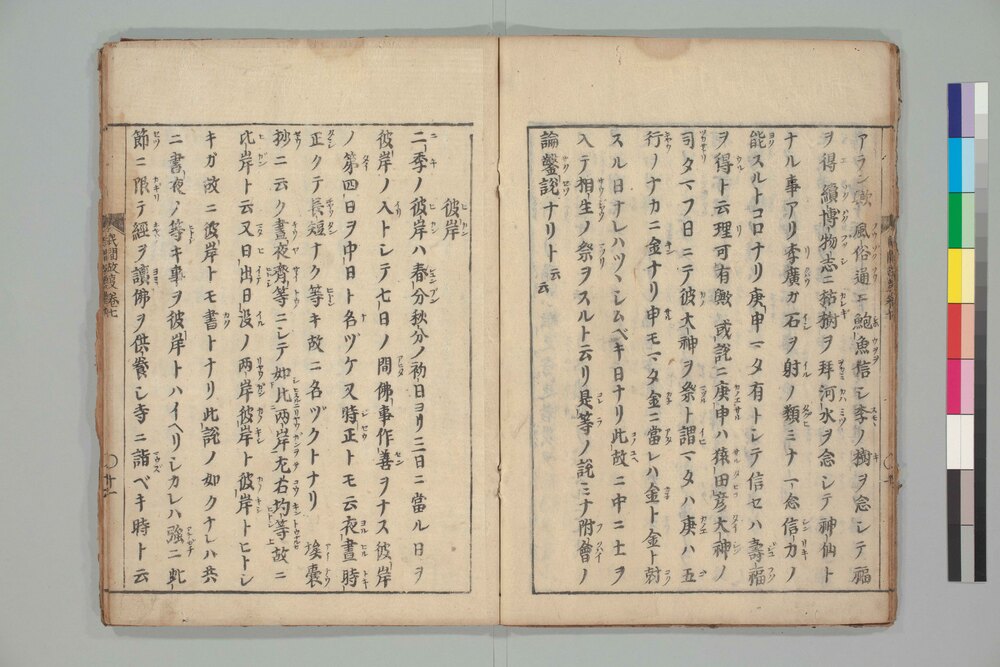 アラン歟風俗通ニ鮑魚信シ李ノ樹ヲ念シテ福
ヲ得續博物志ニ枯樹ヲ拜河水ヲ念シテ神仙ト
ナル事アリ李廣ガ石ヲ射ノ類ミナ一念信力ノ
能スルトコロナリ庚申マタ有トシテ信セハ壽福
ヲ得ト云理可有歟或説ニ庚申ハ猿田彦大神ノ
司タマフ日ニテ彼大神ヲ祭ト謂マタハ庚ハ五
行ノナカニ金ナリ申モマタ金ニ當レハ金ト金ト尅
スル日ナレハツヽシムベキ日ナリ此故ニ中ニ土ヲ
入テ相生ノ祭ヲスルト云リ是等ノ説ミナ附會ノ
論鑿説ナリト云云
彼岸
二季ノ彼岸ハ春分秋分ノ初日ヨリ三日ニ當ル日ヲ
彼岸ノ入トシテ七日ノ間佛事作善ヲナス彼岸
ノ第四日ヲ中日ト名ヅケ又時正トモ云夜晝時
正クテ長短ナク等キ故ニ名ヅクトナリ 埃囊
抄ニ云ク晝夜齊等ニシテ如此兩岸左右均等故ニ
此岸ト云又日出日没ノ兩岸彼岸ト彼岸トヒトシ
キガ故ニ彼岸トモ書トナリ此説ノ如クナレハ共
ニ晝夜ノ等キ事ヲ彼岸トハイヘリシカレハ強ニ此
節ニ限テ經ヲ讀佛ヲ供養シ寺ニ詣ベキ時ト云
民間故事 卷七